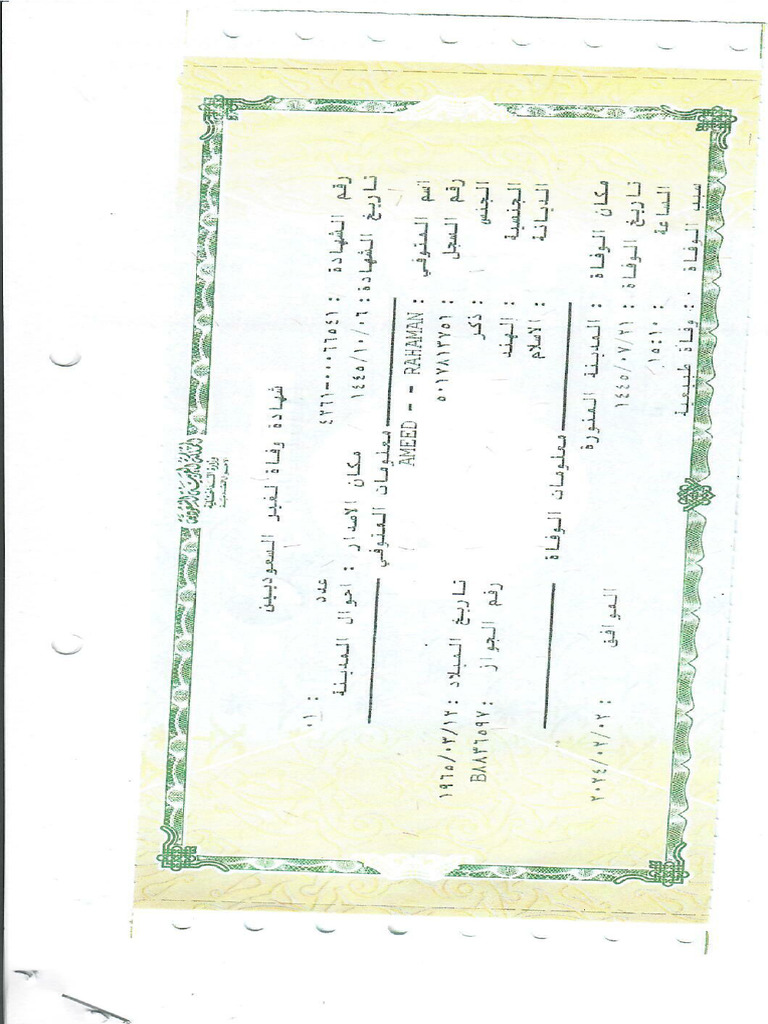 المملكة العربية السعودية
وزارة الداخلية
الأحوال المدنية
شهادة وفاة لغير السعوديين
رقم الشهادة : ٤٧٦١-٠٠٠٦٦٥٤١ عدد : ٠١
تاريخ الشهادة : ١٤٤٥/١٠/٠٦ مكان الاصدار : احوال المدينة
معلومات المتوفي
اسم المتوفي : AMEED - - RAHAMAN
رقم السجل : ٥٠١٧٨١٣٧٥١ تاريخ الميلاد : ١٩٦٥/٠٣/١٢
الجنس : ذكر رقم الجواز : B٨٨٣٦٥٩٧
الجنسية : الهند
الديانة : الاسلام
معلومات الوفاة
مكان الوفاة : المدينة المنورة
تاريخ الوفاة : ١٤٤٥/٠٧/٢١ الموافق : ٢٠٢٤/٠٢/٠٢
الساعة : ١٥:١٠
سبب الوفاة : وفاة طبيعية